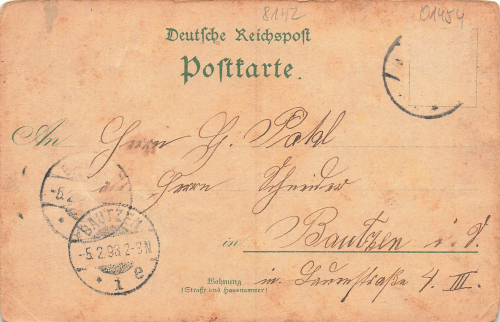 8142
01454
Deutsche Reichspost
Postkarte.
An Herrn H. Pohl
Herrn Schneider
in Bautzen i. S.
Wohnung
(Straße und Hausnummer)
in. Lauenstraße 4. III.
-5.2
BAUTZEN
-5.2.98.2-3N
1 e